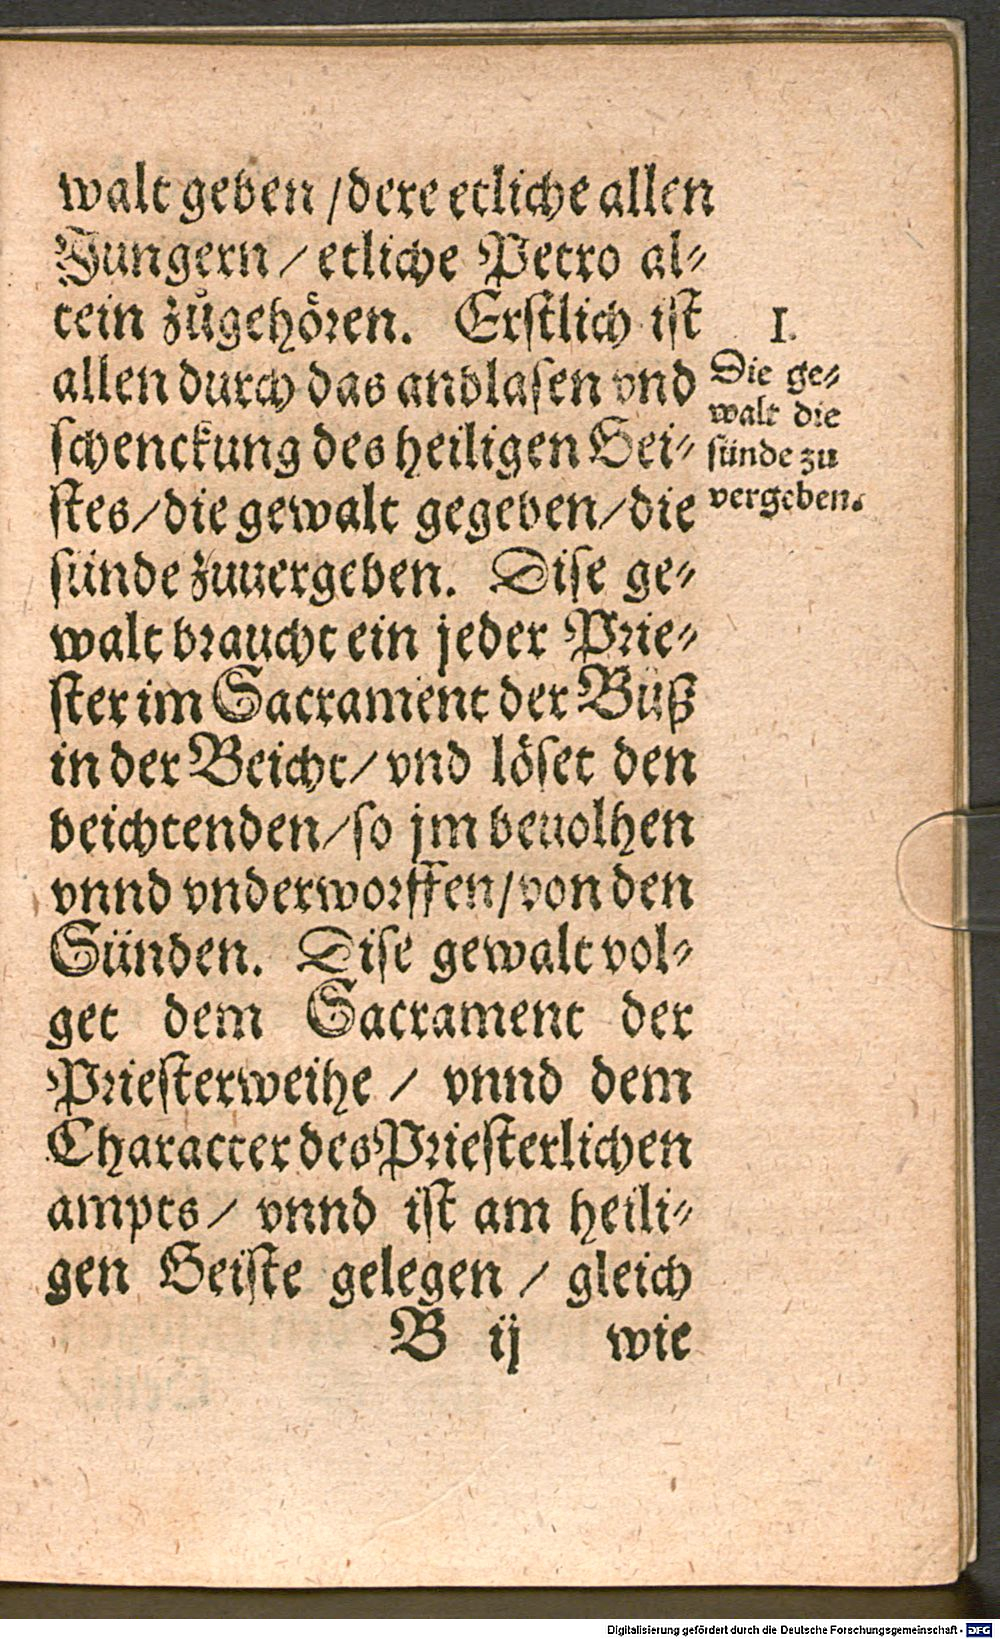 walt geben / dere etliche allen
Jungern / etliche Petro al-
lein zůgehören. Erstlich ist
allen durch das anblasen vnd
schenckung des heiligen Gei-
stes / die gewalt gegeben / die
sünde zuuergeben. Dise ge-
walt braucht ein jeder Prie-
ster im Sacrament der Büß
in der Beicht / vnd löset den
beichtenden / so jm beuolhen
vnnd vnderworffen / von den
Sünden. Dise gewalt vol-
get dem Sacrament der
Priesterweihe / vnnd dem
Character des Priesterlichen
ampts / vnnd ist am heili-
gen Geiste gelegen / gleich
B ij wie
I.
Die ge-
walt die
sünde zu
vergeben.
Digitalisierung gefördert durch die Deutsche Forschungsgemeinschaft - DFG